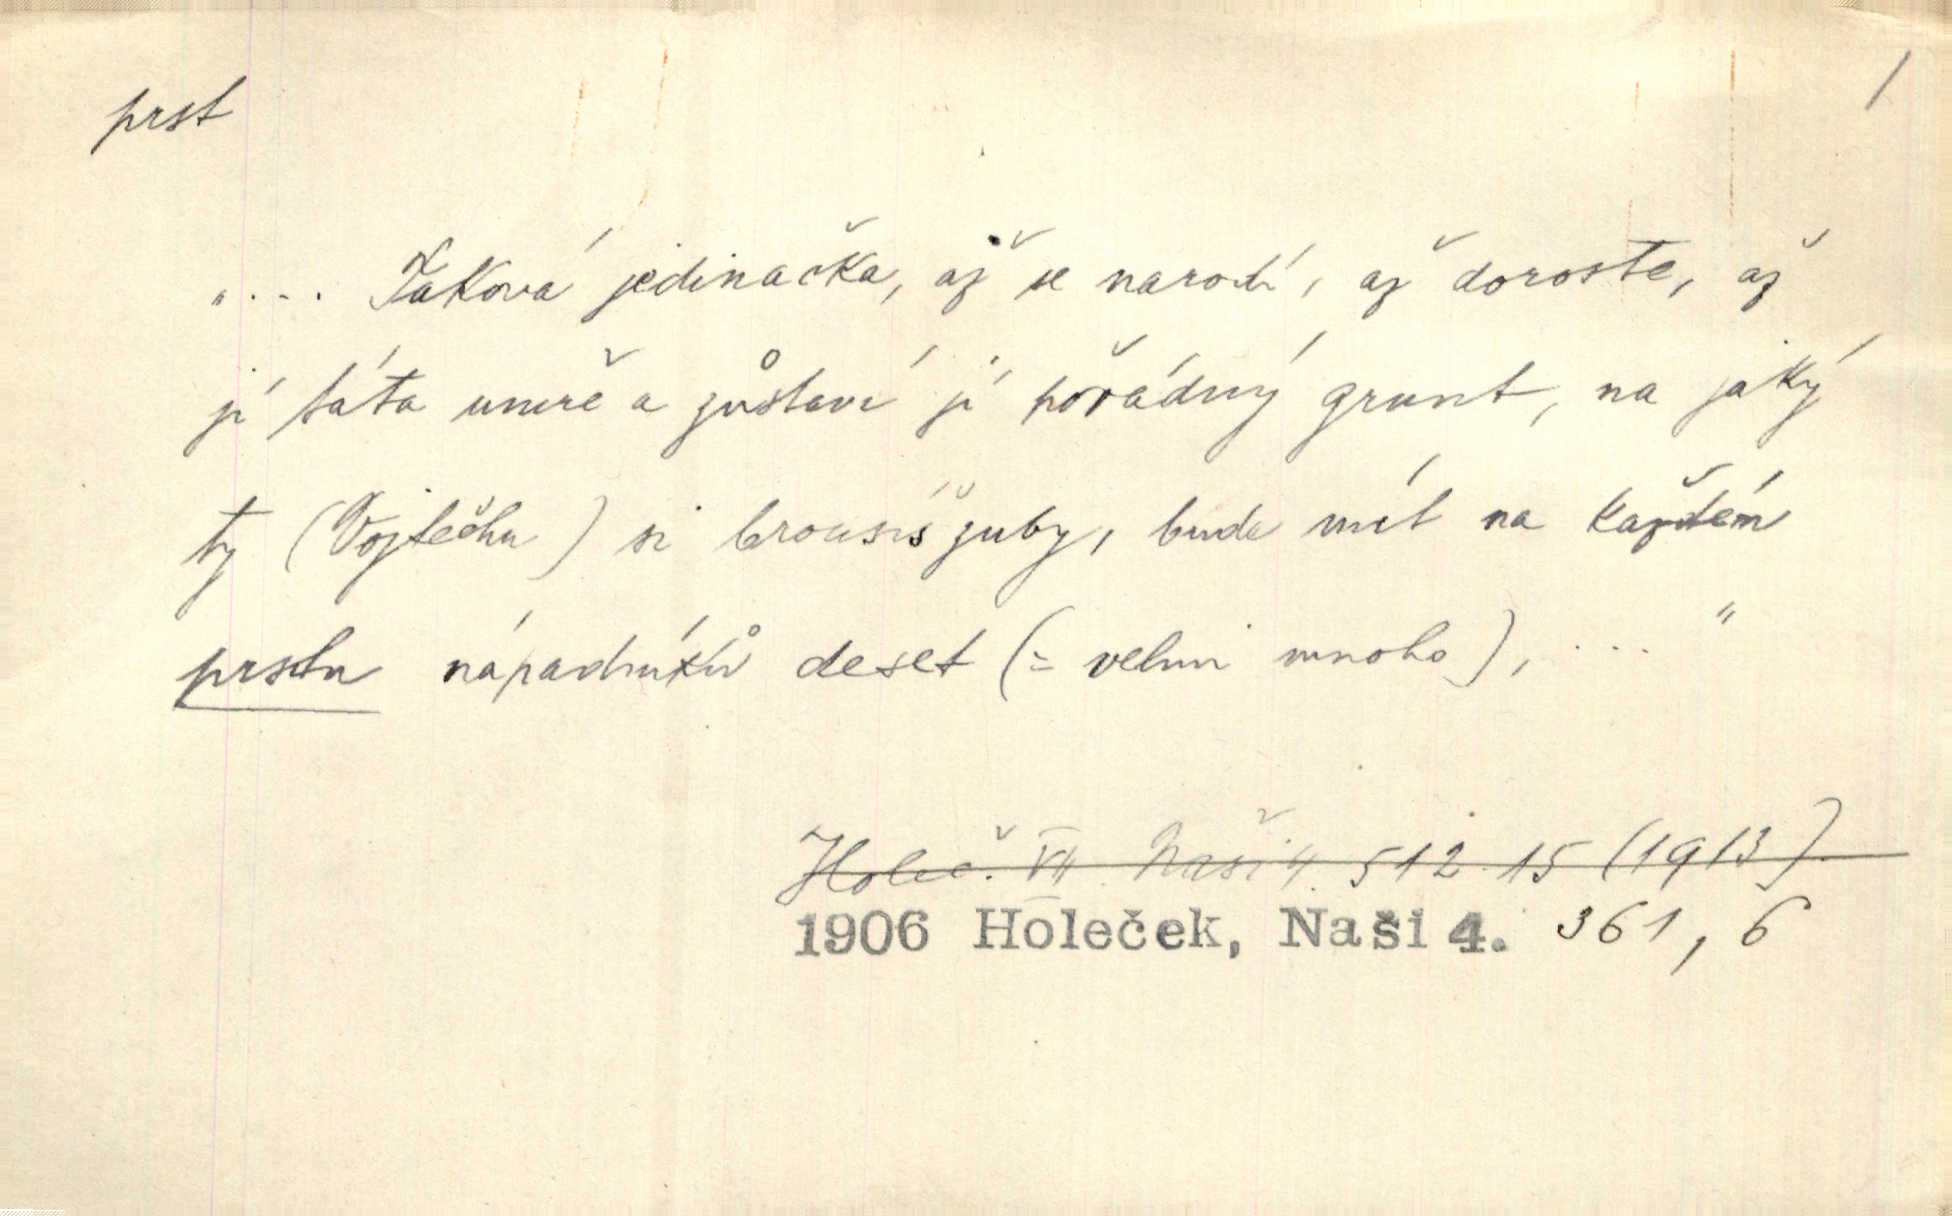 prst
/
„ . . . . Taková jedinačka, až se narodí, až doroste, až
jí táta umře a zůstaví jí pořádný grunt, na jaký
ty (Vojtěchu) si brousíš zuby, bude mít na každém
prstu nápadníků deset (= velmi mnoho), . . . . "
Holeč. VII. Naši 4. 512 15 (1913)
1906 Holeček, Naši 4. 361, 6